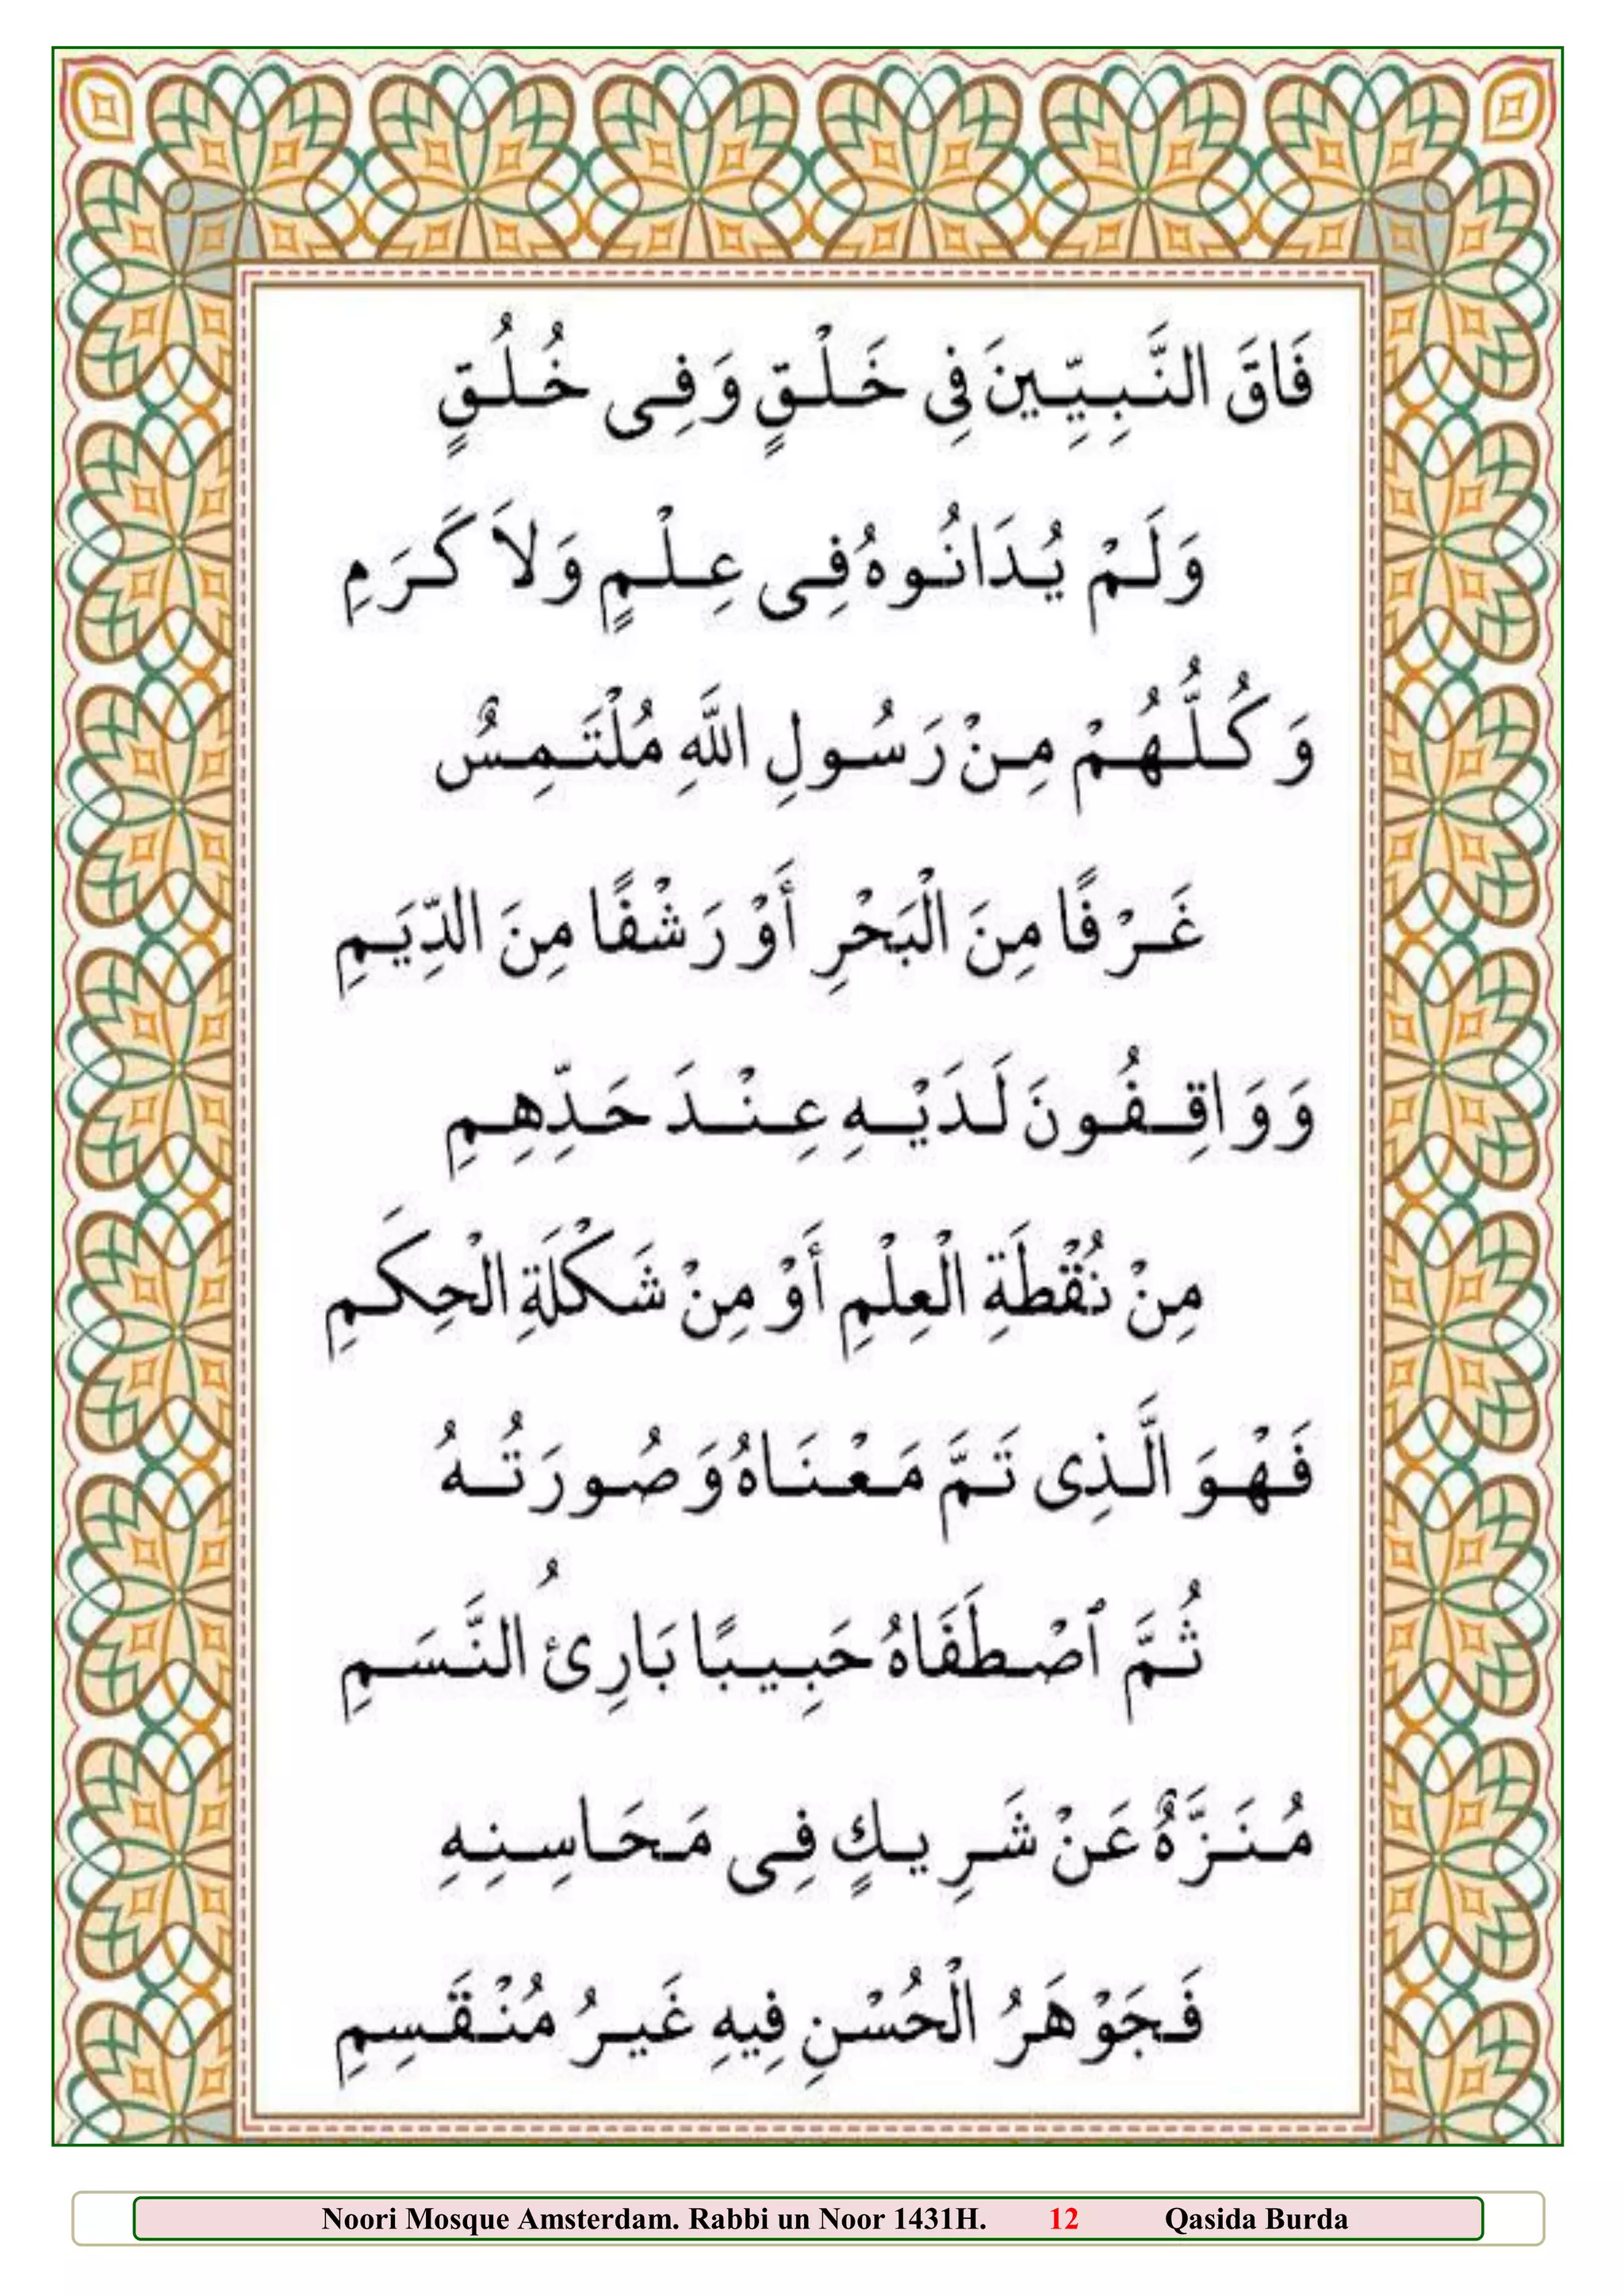 فَاقَ النَّبِيِّينَ فِى خَلْقٍ وَفِى خُلُقٍ
وَلَمْ يُدَانُوهُ فِى عِلْمٍ وَلاَ كَرَمِ
وَكُلُّهُمْ مِنْ رَسُولِ اللَّهِ مُلْتَمِسٌ
غَرْفًا مِنَ الْبَحْرِ أَوْ رَشْفًا مِنَ الدِّيَمِ
وَوَاقِفُونَ لَدَيْهِ عِنْدَ حَدِّهِمِ
مِنْ نُقْطَةِ الْعِلْمِ أَوْ مِنْ شَكْلَةِ الْحِكَمِ
فَهْوَ الَّذِى تَمَّ مَعْنَاهُ وَصُورَتُهُ
ثُمَّ ٱصْطَفَاهُ حَبِيبًا بَارِئُ النَّسَمِ
مُنَزَّهٌ عَنْ شَرِيكٍ فِى مَحَاسِنِهِ
فَجَوْهَرُ الْحُسْنِ فِيهِ غَيرُ مُنْقَسِمِ
Noori Mosque Amsterdam. Rabbi un Noor 1431H. 12 Qasida Burda